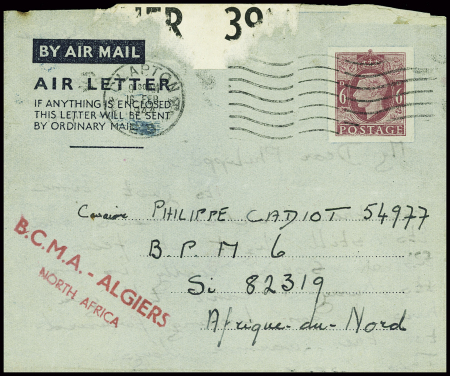 ER 39
BY AIR MAIL
AIR LETTER
IF ANYTHING IS ENCLOSED
THIS LETTER WILL BE SENT
BY ORDINARY MAIL
6 6
POSTAGE
My Dear Philippe
PHILIPPE CADIOT 54977
B. P. M 6
Si 82319
Afrique-du-Nord
B.C.M.A. - ALGIERS
NORTH AFRICA